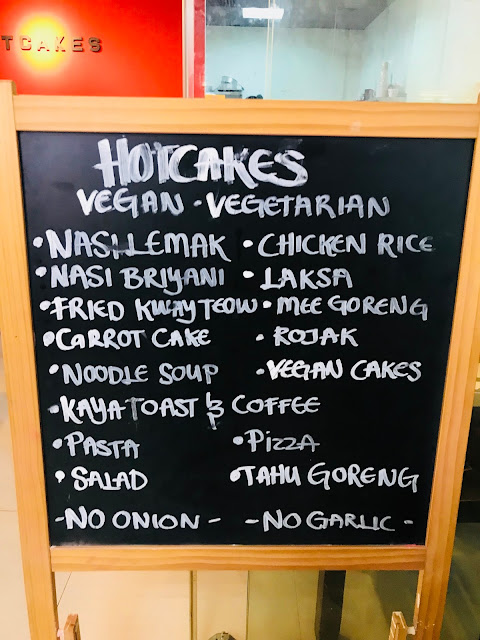 TCAKES
HOTCAKES
VEGAN · VEGETARIAN
• NASI LEMAK • CHICKEN RICE
• NASI BRIYANI • LAKSA
• FRIED KWAY TEOW • MEE GORENG
• CARROT CAKE • ROJAK
• NOODLE SOUP • VEGAN CAKES
• KAYA TOAST & COFFEE
• PASTA • PIZZA
• SALAD • TAHU GORENG
- NO ONION - - NO GARLIC -